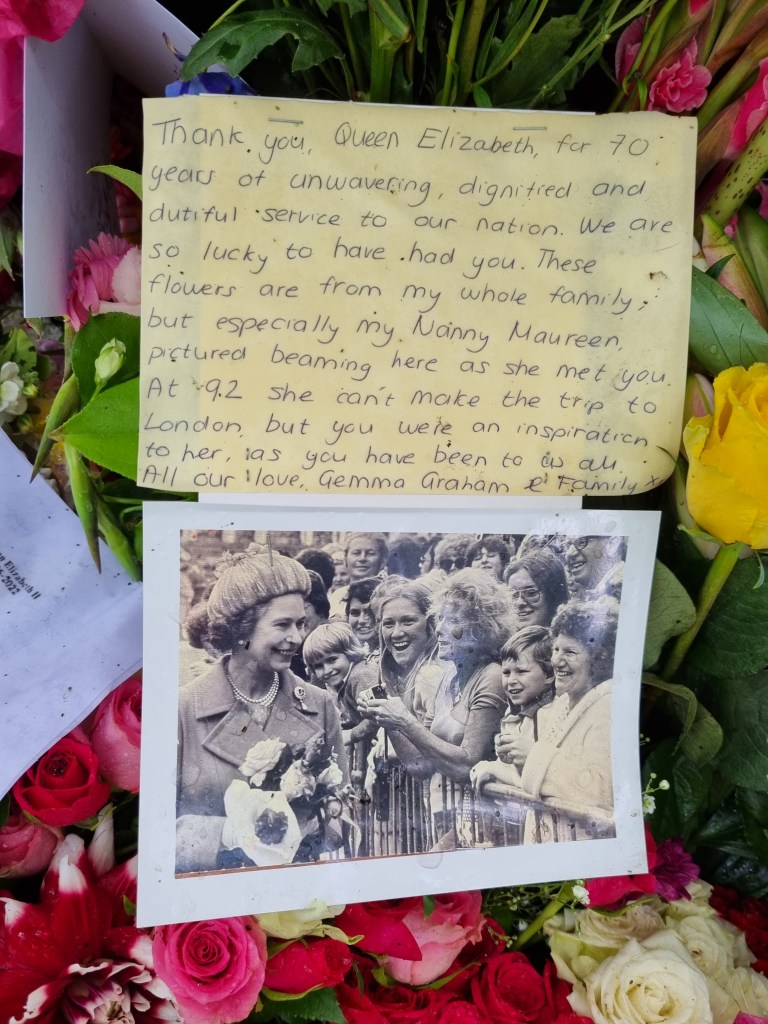 Thank you, Queen Elizabeth, for 70
years of unwavering, dignified and
dutiful service to our nation. We are
so lucky to have had you. These
flowers are from my whole family,
but especially my Nanny Maureen,
pictured beaming here as she met you.
At 92 she can't make the trip to
London, but you were an inspiration
to her, as you have been to us all.
All our love, Gemma Graham & Family x
Elizabeth II
2022